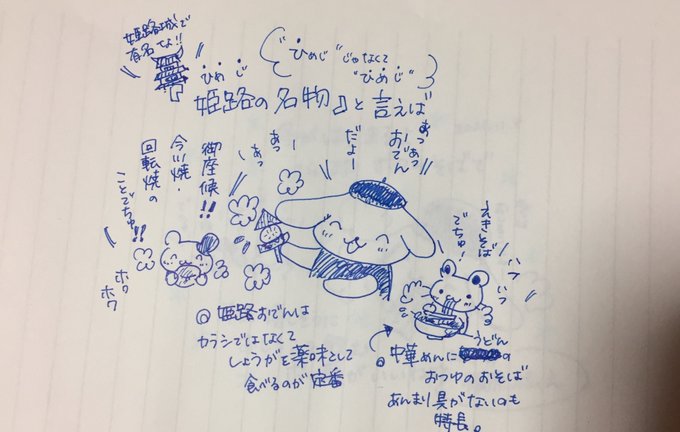 姫路城で
有名だよ!!
"ひめじ"じゃなくて
"ひめじ"
ひめじ
姫路の名物♪と言えば
あっ
あっ
おでん
だよー
あっ
あっ
御座候!!
今川焼・
回転焼の
ことでちゅ!!
ホク
ホク
えきそば
でちゅー
◎姫路おでんは
カラシではなくて
しょうがを薬味として
食べるのが定番
◎中華めんにうどんの
おつゆのおそば
あんまり具がないのも
特長。